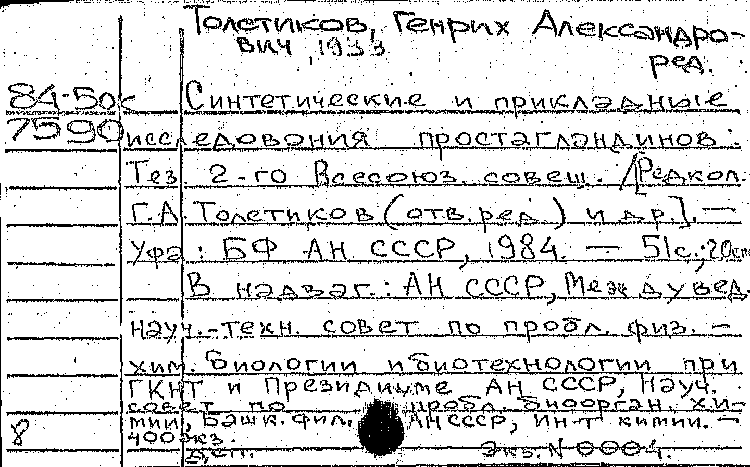 Толстиков, Генрих Александро-
вич, 1933
ред.
84-50к Синтетические и прикладные
7590 исследования простагландинов:
Тез. 2-го Всесоюз. совещ. /[Редкол.
Г.А. Толстиков (отв. ред.) и др.].—
Уфа: БФ АН СССР, 1984. — 51с.; 20см
В надзаг.: АН СССР, Междувед.
науч.-техн. совет по пробл. физ.-
хим. биологии и биотехнологии при
ГКНТ и Президиуме АН СССР, Науч.
совет по пробл. биоорган. хи-
мии, Башк. фил. АН СССР, Ин-т химии. —
8 400 экз.
Экз. N 0004.